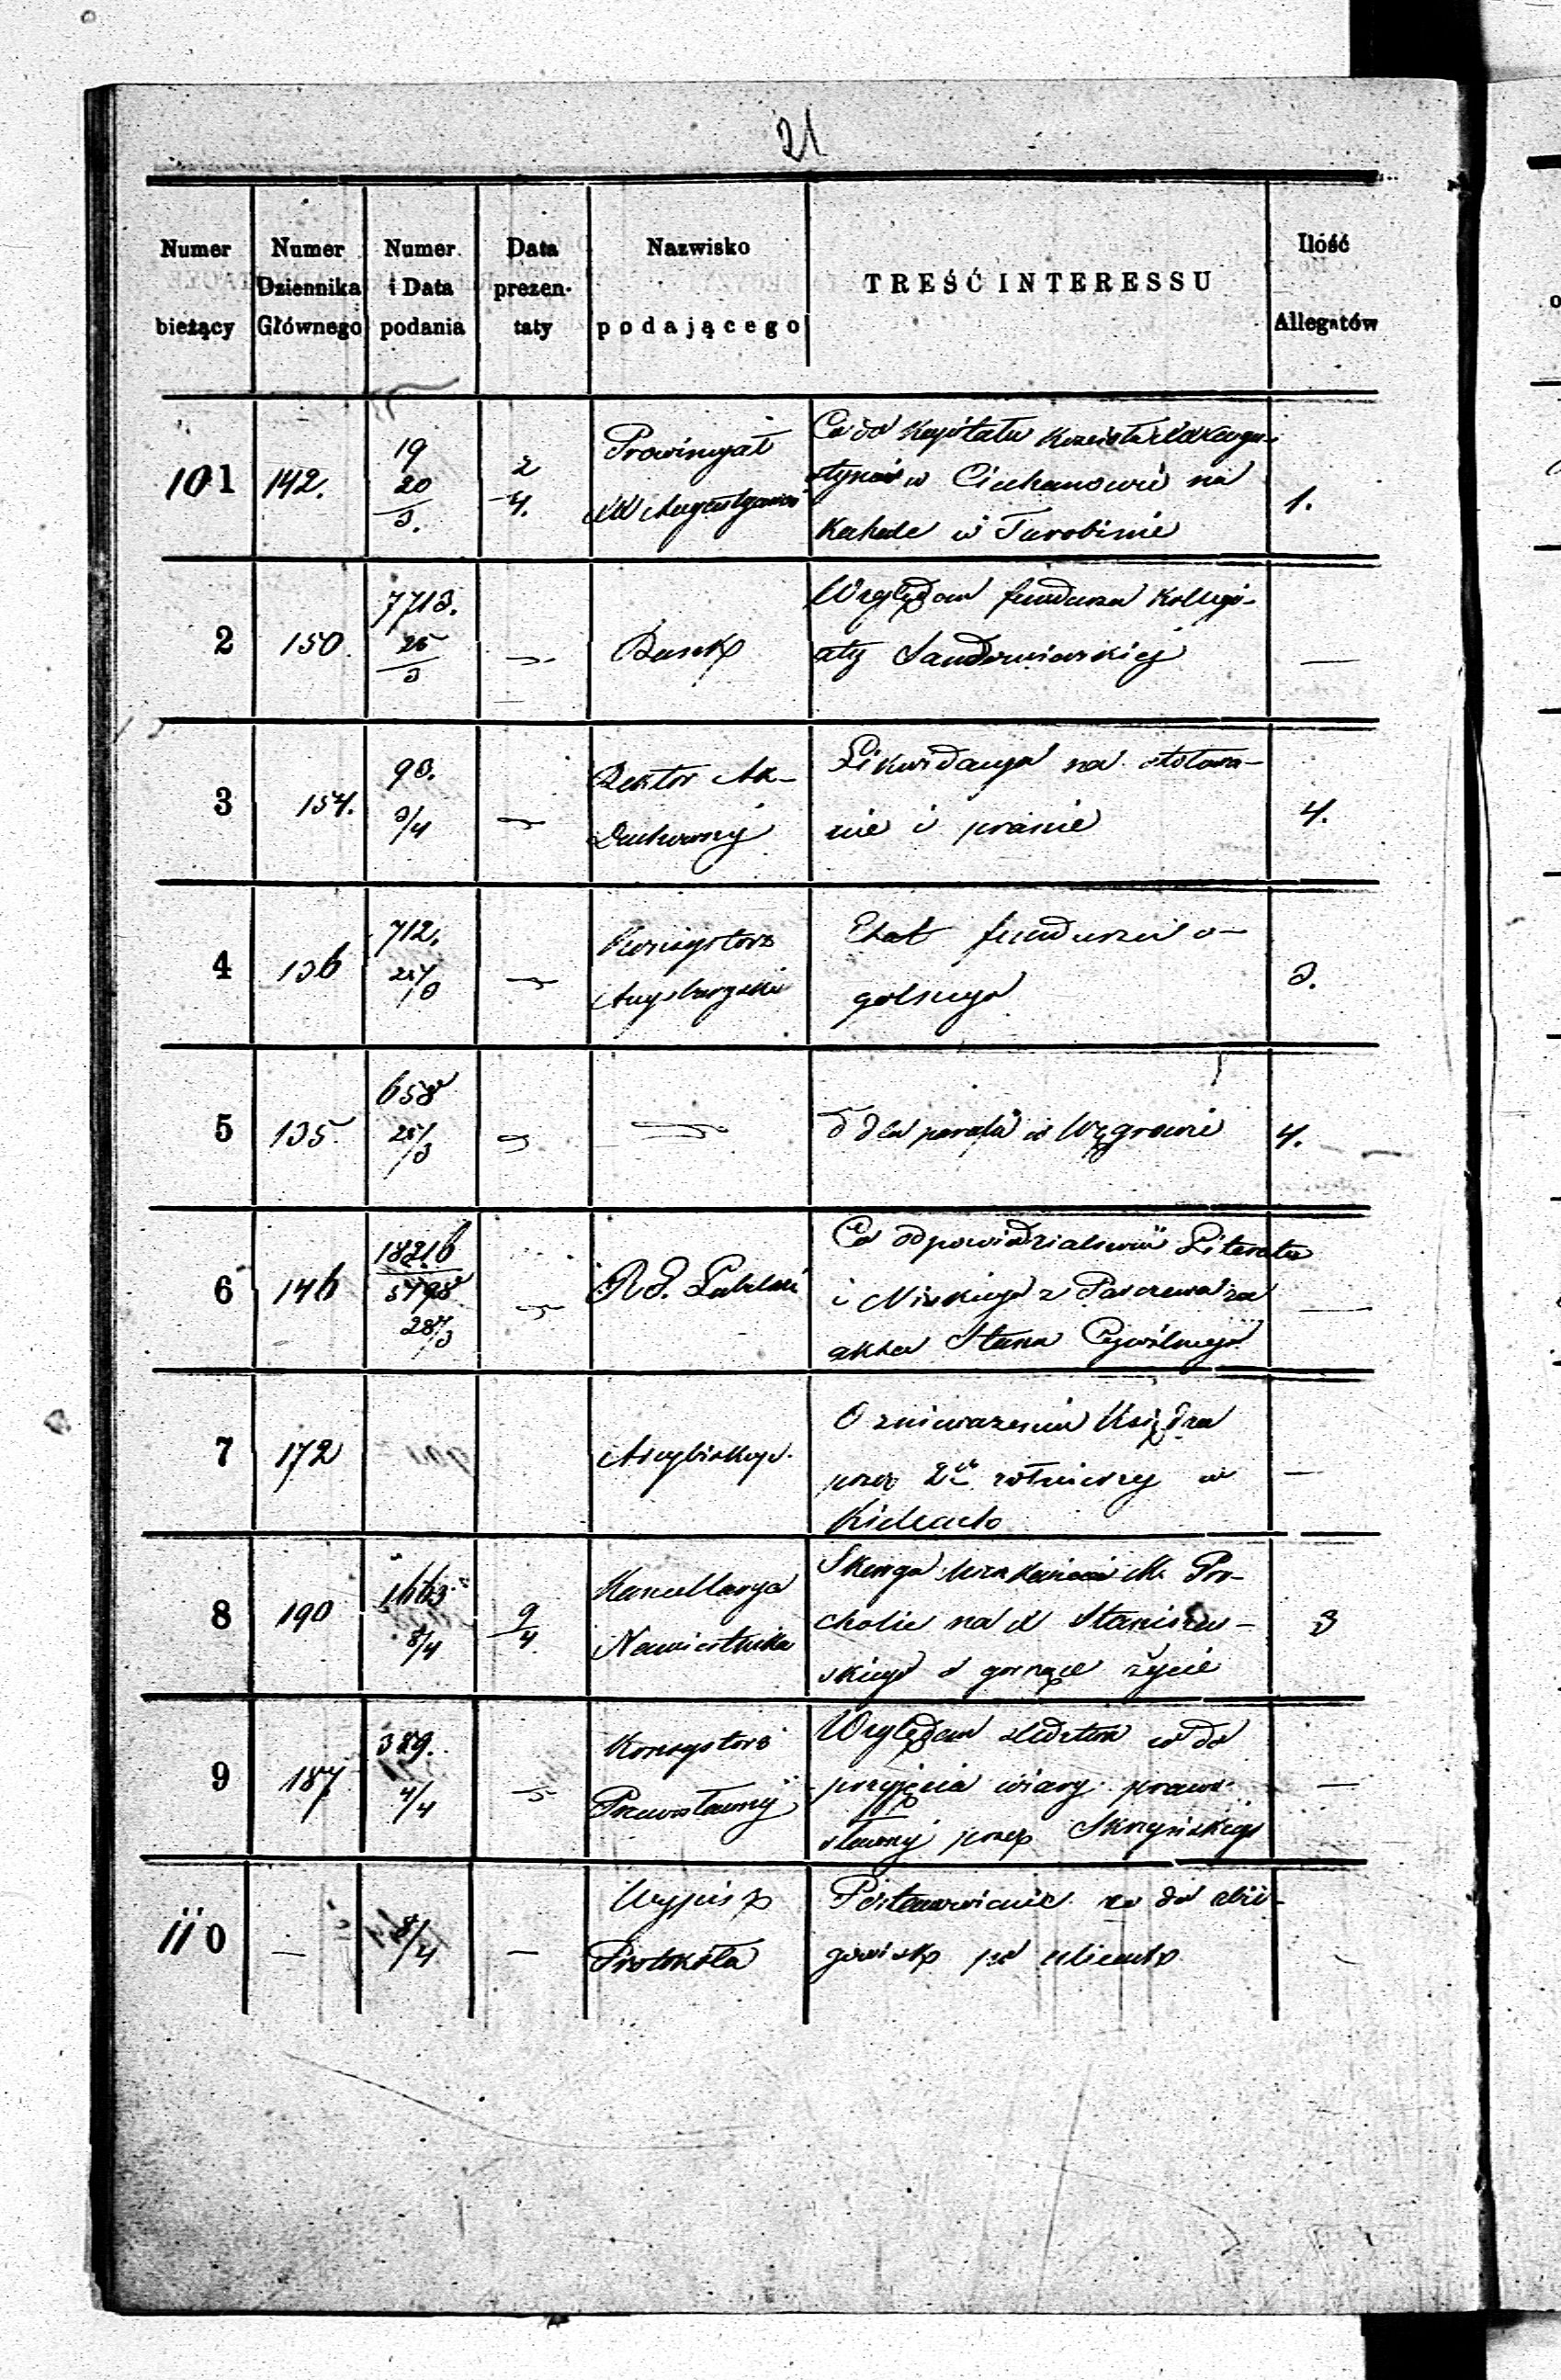 21
Numer bieżący | Numer Dziennika Głównego | Numer i Data podania | Data prezentaty | Nazwisko podającego | TREŚĆ INTERESSU | Ilość Allegatów
101 | 142. | 19 20/3. | 2/4. | Prowincyał XX Augustyanów | Co do Kapitału Kościoła XX Augustynów w Ciechanowie na Kahale w Turobinie | 1.
2 | 150. | 7713. 25/3 | — | Bank | Względem funduszu Kollegiaty Sandomierskiej | —
3 | 154. | 93. 3/4 | — | Rektor Ak. Duchowny | Likwidacya na stołowanie i pranie | 4.
4 | 136 | 712. 24/3 | — | Konsystorz Augsburgski | Etat funduszu ogólnego | 3.
5 | 135. | 658 25/3 | — | — | d dla parafii w Węgrowie | 4.
6 | 146 | 18216/5498 28/3 | — | R. G. Lubelski | Co odpowiedzialności Literata i Niskiego z Parczewa za akta Stanu Cywilnego | —
7 | 172 | Arcybiskup. | O znieważeniu Księdza przez 2ch żołnierzy w Kielcach | —
8 | 190 | 1663 8/4 | 9/4 | Kancellarya Namiestnika | Skarga na X Staniszewskiego o gorszące życie | 3
9 | 187 | 389. 4/4 | — | Konsystorz Prawosławny | Względem śledztwa co do przyjęcia wiary prawosławnej przez Skrzyńskiego | —
110 | — | 8/4 | — | Wypis z Protokóła | Postanowienie co do zbiegowisk po ulicach